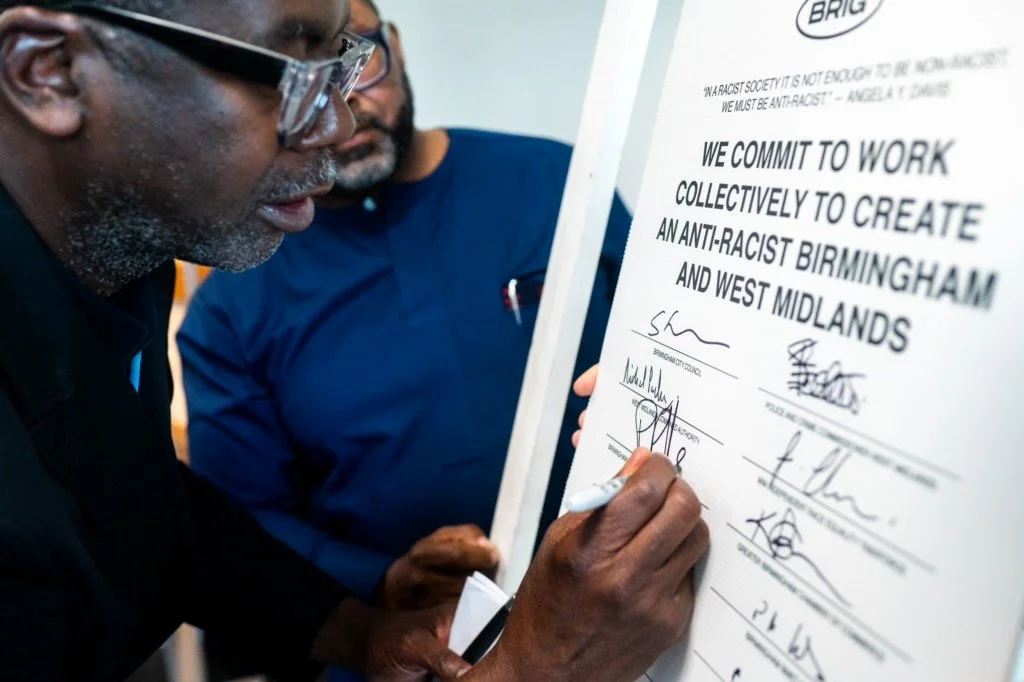 BRIG
"IN A RACIST SOCIETY IT IS NOT ENOUGH TO BE NON-RACIST,
WE MUST BE ANTI-RACIST." — ANGELA Y. DAVIS
WE COMMIT TO WORK
COLLECTIVELY TO CREATE
AN ANTI-RACIST BIRMINGHAM
AND WEST MIDLANDS
BIRMINGHAM CITY COUNCIL
POLICE AND CRIME COMMISSIONER WEST MIDLANDS
WEST MIDLANDS COMBINED AUTHORITY
BIRMINGHAM
GREATER BIRMINGHAM CHAMBER OF COMMERCE
BIRMINGHAM